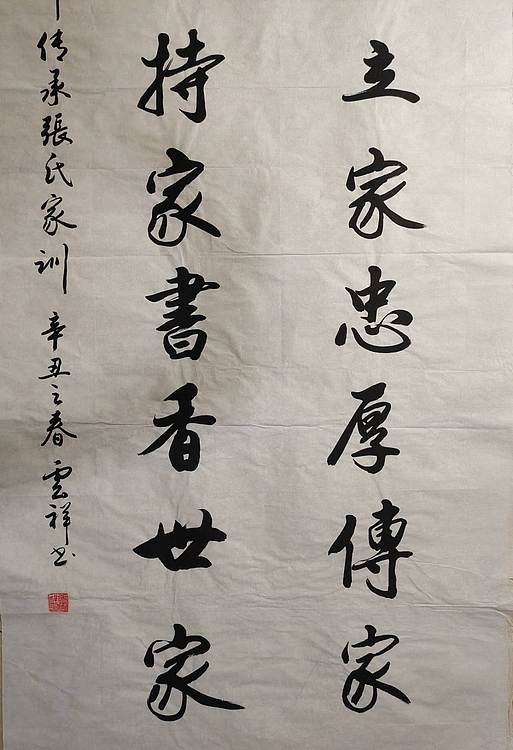 立家忠厚傳家
持家書香世家
傳承張氏家訓 辛丑之春 雲祥书